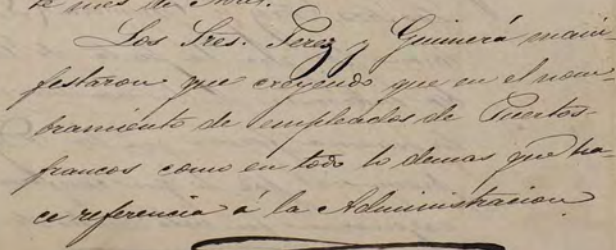 te mes de Abril.
Los Sres. Perez y Guimerá mani
festaron que creyendo que en el nom
bramiento de empleados de Puertos-
francos como en todo lo demas que ha-
ce referencia á la Administracion